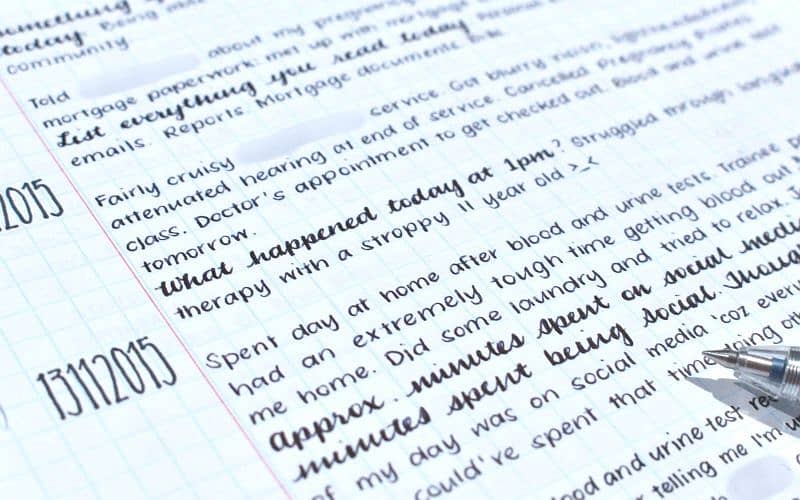 today. Being able
community
Told about my pregnancy
mortgage paperwork; met up with mortgage
List everything you read today. Personal
emails. Reports. Mortgage documents.
2015
Fairly cruisy service. Got blurry vision,
attenuated hearing at end of service. Cancelled Pregnancy Pilates
class. Doctor's appointment to get checked out. Blood and urine test
tomorrow.
What happened today at 1pm? Struggled through
therapy with a stroppy 11 year old >_<
13112015
Spent day at home after blood and urine tests. Trainee
had an extremely tough time getting blood out
me home. Did some laundry and tried to relax.
approx. minutes spent on social media
minutes spent being social. Though
of my day was on social media 'coz
could've spent that time doing
blood and urine test
telling me I'm